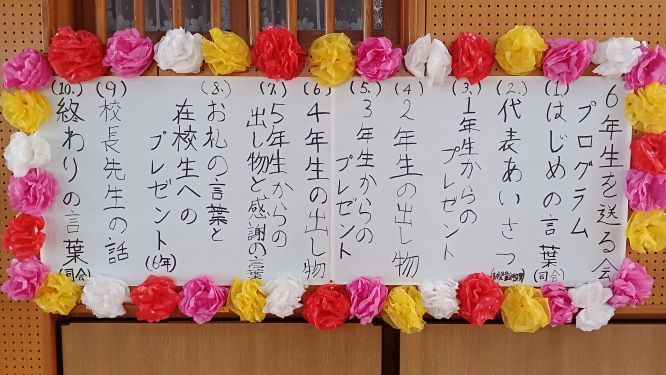 6年生を送る会
プログラム
(1.) はじめの言葉(司会)
(2.) 代表あいさつ
(3.) 1年生からの
プレゼント
(4) 2年生の出し物
(5.) 3年生からの
プレゼント
(6.) 4年生の出し物
(7.) 5年生からの
出し物と感謝の言葉
(8.) お札の言葉と
在校生への
プレゼント(6年)
(9) 校長先生の話
(10.) 終わりの言葉(司会)